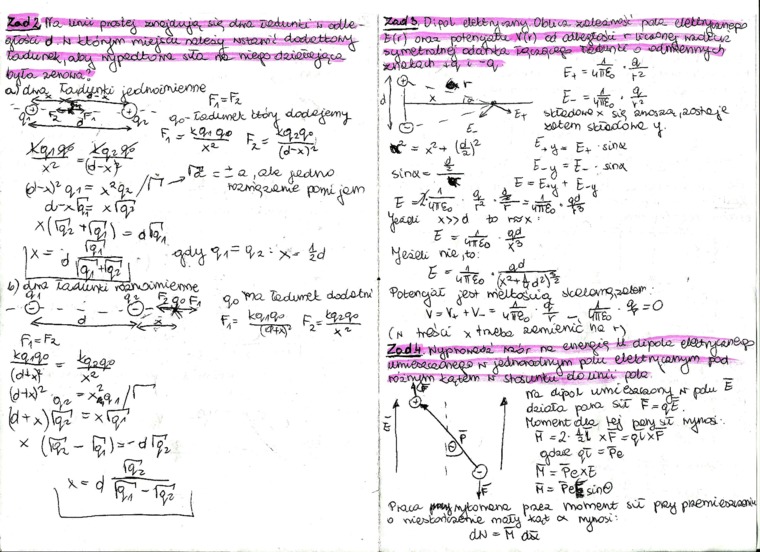 Zad 2. Na linii prostej znajdują się dwa ładunki w odle-
głości d. W którym miejscu należy wstawić dodatkowy
ładunek, aby wypadkowa siła na niego działająca
była zerowa?
a) dwa ładunki jednoimienne
x d-x F₁=F₂
q₁ F₂ F₁ q₂ q₀ - ładunek który dodajemy
d
F₁ = kq₁q₀/x² F₂ = kq₂q₀/(d-x)²
kq₁q₀/x² = kq₂q₀/(d-x)²
(d-x)² q₁ = x²q₂ /√ → √a² = ±a, ale jedno
rozwiązanie pomijam
d-x√q₁ = x√q₂
x(√q₂ + √q₁) = d√q₁
x = d √q₁/√q₁+√q₂ gdy q₁ = q₂ : x = ½d
b) dwa ładunki różnoimienne
q₁ q₂ F₂ q₀ F₁ q₀ ma ładunek dodatni
d x
F₁ = kq₁q₀/(d+x)² F₂ = kq₂q₀/x²
F₁=F₂
kq₁q₀/(d+x)² = kq₂q₀/x²
(d+x)² q₂ = x² q₁ /√
(d+x)√q₂ = x√q₁
x (√q₂ - √q₁) = -d√q₂
x = d √q₂/√q₁-√q₂
Zad 3. Dipol elektryczny. Oblicz zależność pola elektrycznego
E(r) oraz potencjału V(r) od odległości r liczonej wzdłuż
symetralnej odcinka łączącego ładunki o odmiennych
znakach +q i -q.
E₊ = 1/4πε₀ · q/r²
E₋ = 1/4πε₀ · q/r²
d x E₊ E₋
składowe x się znoszą, zostaje
zatem składowa y.
r² = x² + (d/2)² E₊y = E₊ · sinα
E₋y = E₋ · sinα
sinα = d/2/r E = E₊y + E₋y
E = 2·1/4πε₀ · q/r² · d/2/r = 1/4πε₀ · qd/r³
Jeśli x>>d to r≈x:
E = 1/4πε₀ · qd/x³
Jeżeli nie, to:
E = 1/4πε₀ · qd/(x²+¼d²)^3/2
Potencjał jest wielkością skalarną, zatem:
V = V₊ + V₋ = 1/4πε₀ · q/r - 1/4πε₀ · q/r = 0
(w treści x trzeba zamienić na r)
Zad 4. Wyprowadź wzór na energię U dipola elektrycznego
umieszczonego w jednorodnym polu elektrycznym pod
różnym kątem w stosunku do linii pola.
na dipol umieszczony w polu E̅
działa para sił F̅=qE̅.
Moment dla tej pary sił wynosi:
M̅ = 2·½l̅ × F̅ = ql̅×F̅
gdzie ql̅ = P̅e
M̅ = P̅e×E
M̅ = P̅eE sinΘ
E̅ Θ P̅ F̅
Praca wykonana przez moment sił przy przemieszczeniu
o nieskończenie mały kąt α wynosi:
dW = M̅ dα̅